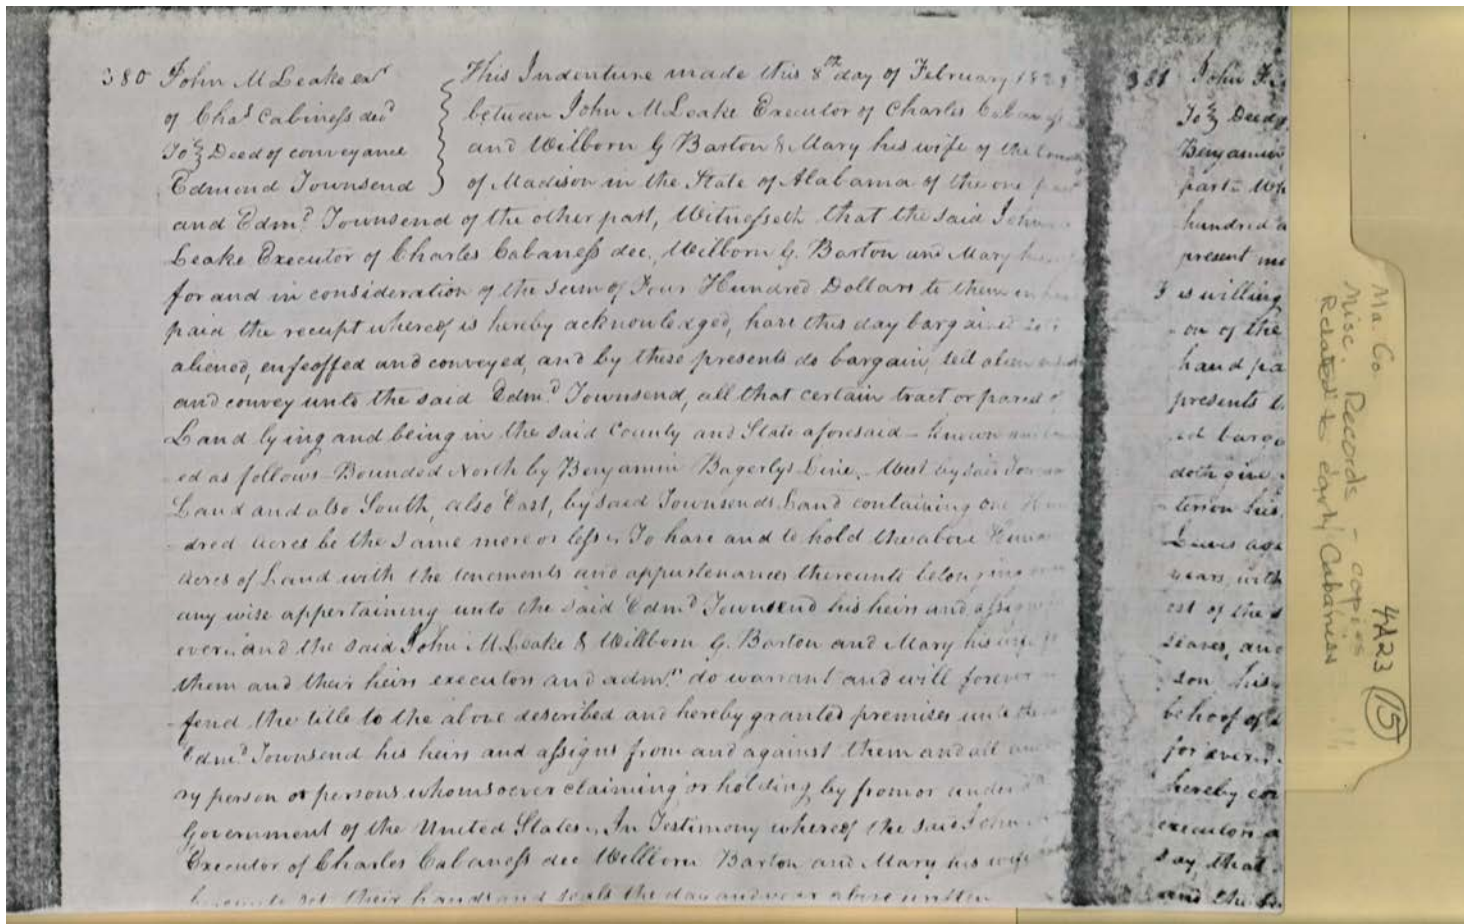 380 John M Leake exr
of Chas Cabiness decd
To } Deed of conveyance
Edmond Townsend
This Indenture made this 8th day of February 182
between John M Leake Executor of Charles Caban
and Wilborn G Barton & Mary his wife of the
of Madison in the State of Alabama of the one part
and Edmd Townsend of the other part, Witnesseth that the said John
Leake Executor of Charles Cabaness dec, Wilborn G. Barton and Mary his
for and in consideration of the sum of Four Hundred Dollars to them in
paid the receipt whereof is hereby acknowledged, have this day bargained
aliened, enfeoffed and conveyed, and by these presents do bargain, sell alien
and convey unto the said Edmd Townsend, all that certain tract or parcel of
Land lying and being in the said County and State aforesaid - known
ed as follows - Bounded North by Benjamin Bagerlys Line - West by said
Land and also South, also East, by said Townsends Land containing one
-dred acres be the same more or less, To have and to hold the above
acres of Land with the tenements and appurtenances thereunto belonging
any wise appertaining unto the said Edmd Townsend his heirs and assigns
ever, and the said John M Leake & Willborn G. Barton and Mary his wife
them and their heirs executors and admrs do warrant and will forever
-fend the title to the above described and hereby granted premises unto the
Edmd Townsend his heirs and assigns from and against them and all
ry person or persons whomsoever claiming or holding by from or under
Government of the United States, In Testimony whereof the said John
Executor of Charles Cabaness dec Willborn Barton and Mary his wife
set their hands and seals the day and year above written
381 John
To } Deed
Benjamin
part
hundred
present
I is willing
on of the
hand pa
presents
ed barga
doth give

years, with
est of the

son his
behoof of
for ever
hereby
executors a
say, that
and the
4A23 (15)
Ma. Co.
Misc. Records - copies
Related to early Cabaniss